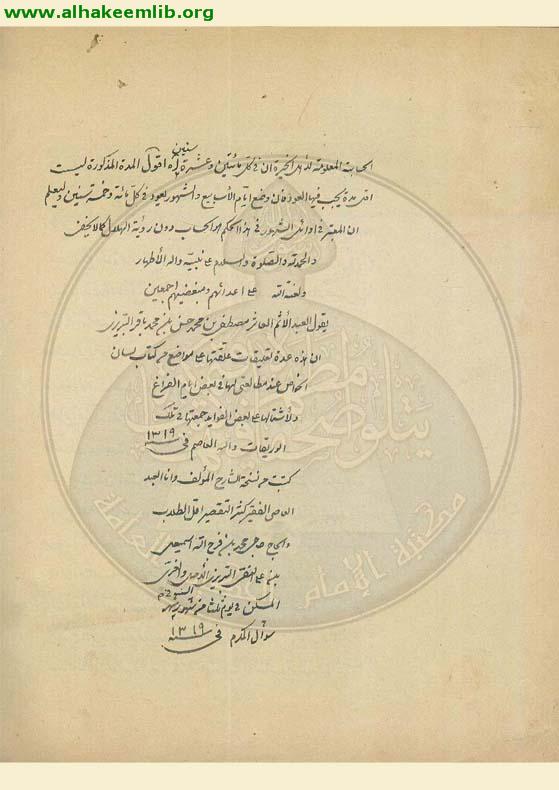 www.alhakeemlib.org
سنين
الحسابة المعلومة لذلك الخيرة ان في كل مائتين وعشرة اقول المدة المذكورة ليست
اقل مدة يجب فيها العود فان وضع ايام الأسابيع والشهور يعود في كل مائة وخمسة سنين وليعلم
ان المعتبر في اوائل الشهور في هذا الحكم هو الحساب دون رؤية الهلال كما لا يخفى
والحمد لله والصلوة والسلام على نبيه واله الأطهار
ولعنة الله على اعدائهم ومبغضيهم اجمعين
يقول العبد الأثم العاثر مصطفى بن محمد حسن بن محمد باقر التبريزى
ان هذه عدة تعليقات علقتها على مواضع من كتاب لسان
الخواص عند مطالعتى لها فى بعض ايام الفراغ
ولأشتمالها على بعض الفوايد جمعتها فى تلك
الوريقات والله العاصم فى سنه ١٣١٩
كتبت من نسخة الشارح المؤلف وانا العبد
العاصى الفقير كثير التقصير اقل الطلاب
والحاج محمد بن فرج الله
التبريزى
المسكن فى يوم من شهور
شوال المكرم فى سنه ١٣١٩